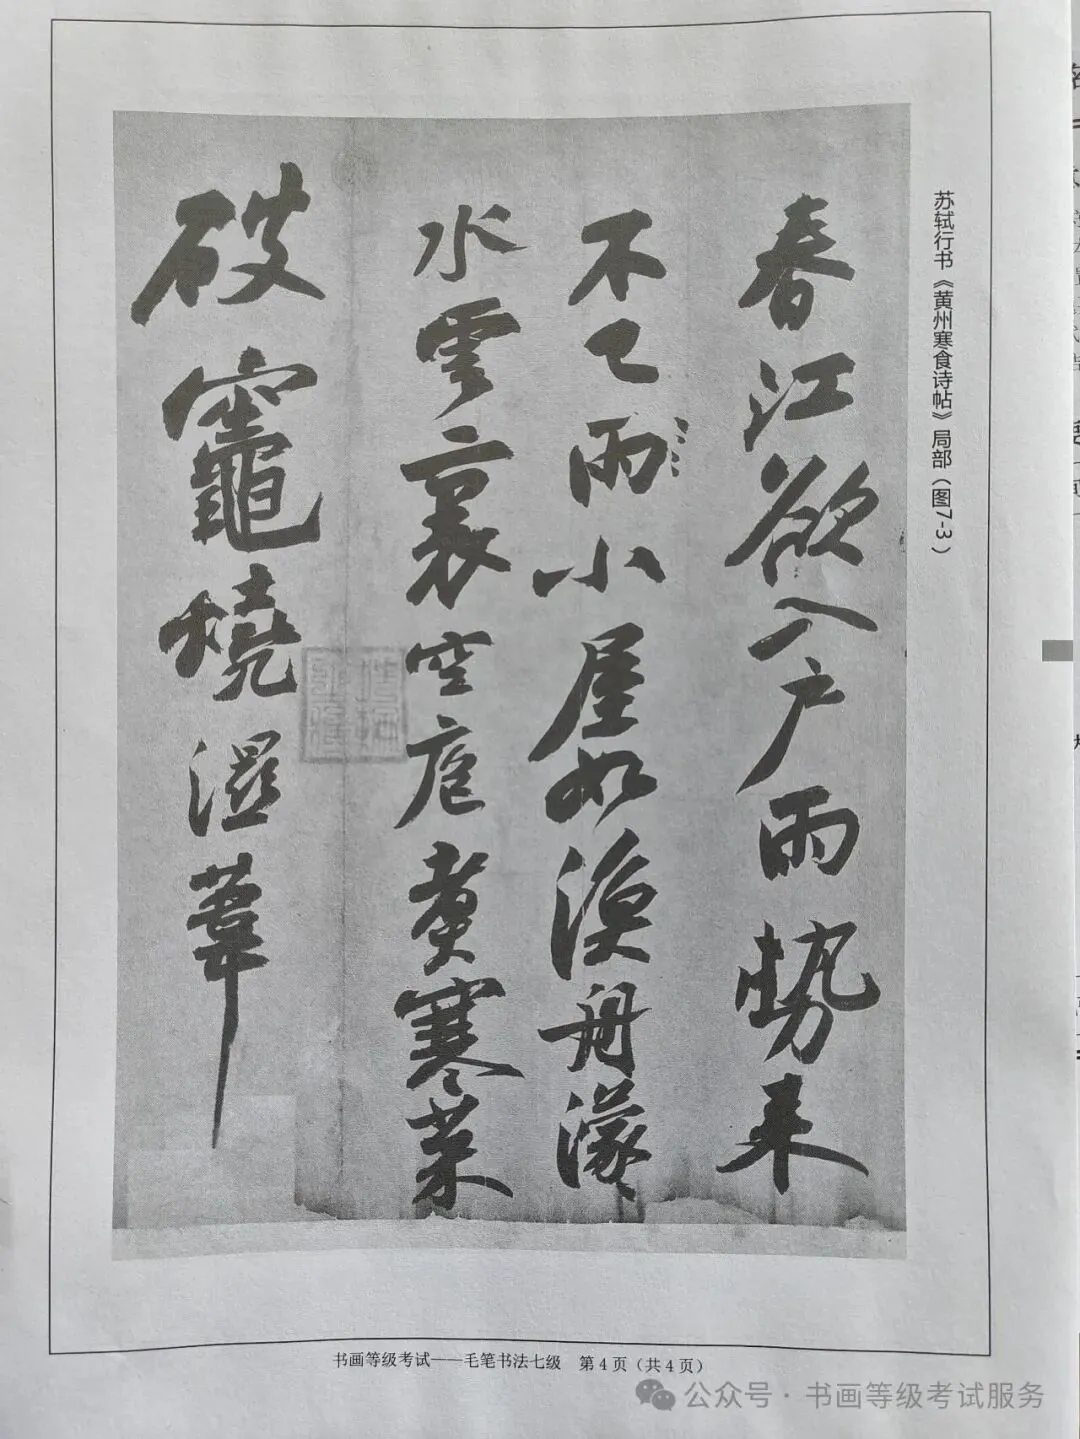 苏轼行书《黄州寒食诗帖》局部（图7-3）
春江欲入戶雨勢來
不已雨小屋如漁舟濛
水雲裏空庖煮寒菜
破竈燒濕葦
书画等级考试——毛笔书法七级 第4页（共4页）
公众号·书画等级考试服务